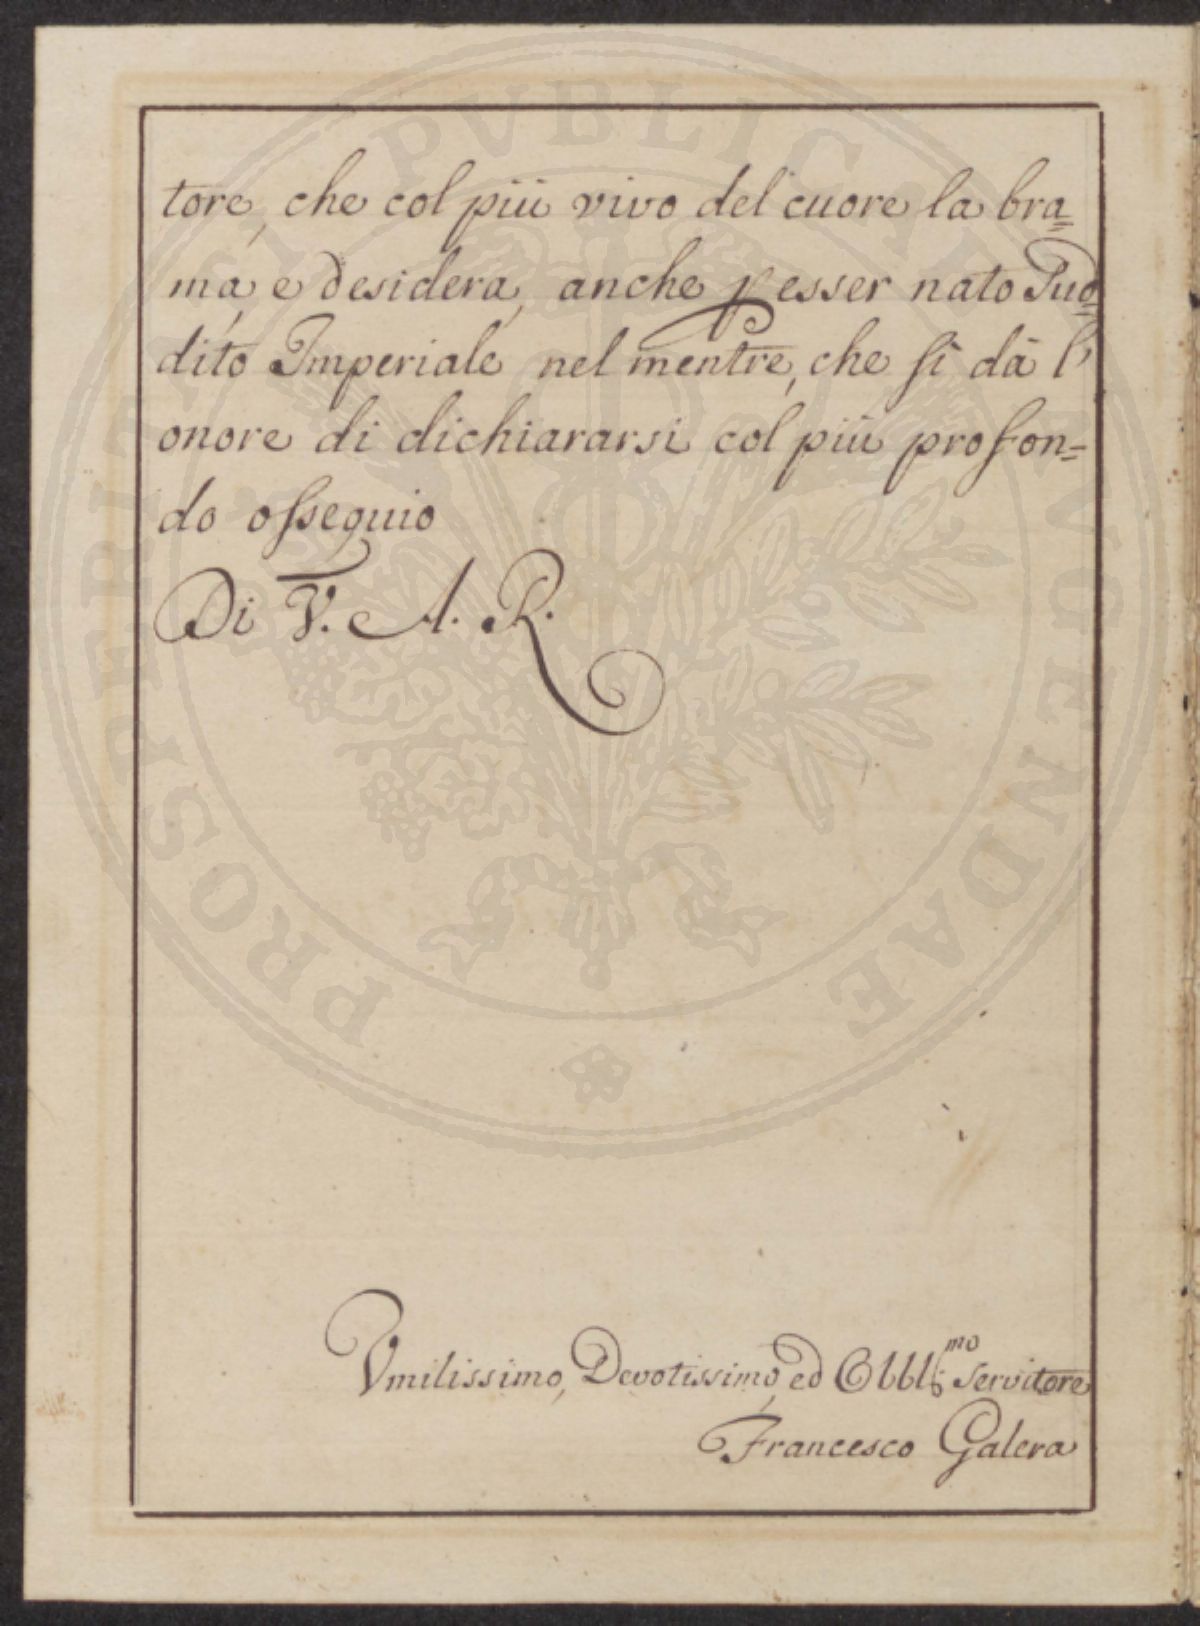 tore, che col più vivo del cuore la bra=
ma, e desidera, anche p esser nato Sud=
dito Imperiale nel mentre, che si dà l'
onore di dichiararsi col più profon=
do ossequio
Di V. A. R.
Vmilissimo, Devotissimo, ed Obbl:mo Servitore
Francesco Galera
PROSPERITATI PVBLICAE AVGENDAE